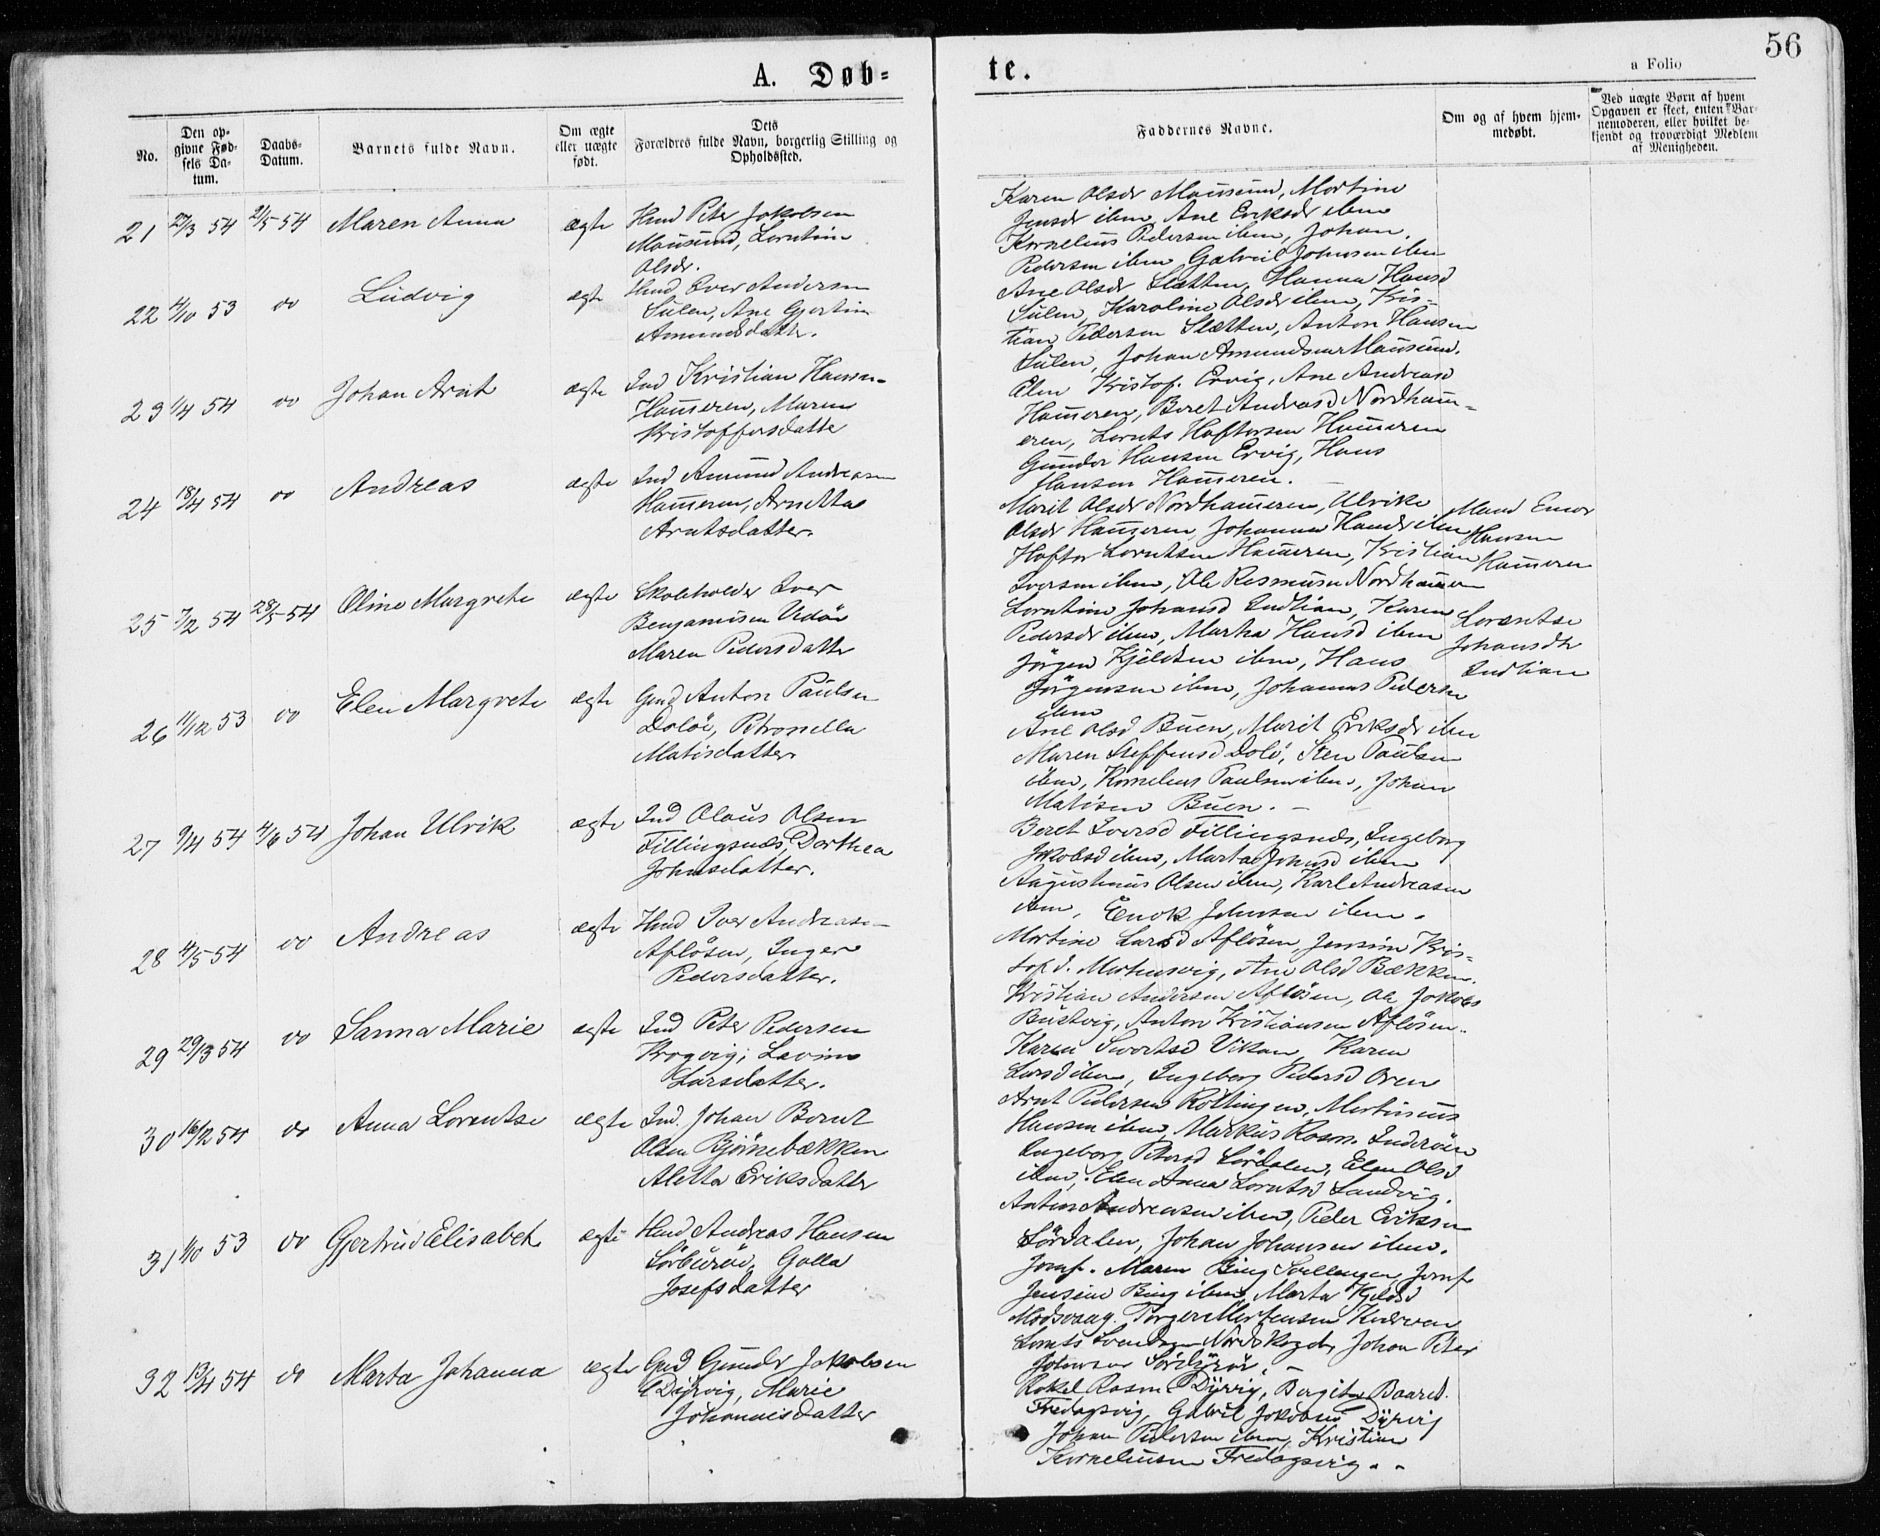 56
A. Døb-
te.
a Folio
No.
Den op-
givne Fød-
sels Da-
tum.
Daabs-
Datum.
Barnets fulde Navn.
Om ægte
eller uægte
født.
Dets
Forældres fulde Navn, borgerlig Stilling og
Opholdssted.
Faddernes Navne.
Om og af hvem hjem-
medøbt.
Ved uægte Børn af hvem
Opgaven er skeet, enten Bar-
nemoderen, eller hvilket be-
kjendt og troværdigt Medlem
af Menigheden.
21 27/3 54 2/5 54 Maren Anna ægte Hmd Peter Jakobsen
Mausund, Lorntine
Olsdr.
Karen Olsdr Mausund, Martine
Jensdr ibm, Ane Eriksdr ibm
Kornelius Pedersen ibm, Johan
Pedersen ibm Gabriel Johnsen ibm
22 4/10 53 do Ludvig ægte Hmd Iver Andersen
Sulen, Ane Gjertine
Amundsdatter.
Ane Olsdr Slætten, Hanna Hansd
Sulen, Karoline Olsdr ibm, Kris-
tian Pedersen Slætten, Anton Hansen
Sulen, Johan Amundsen Mausund.
23 1/4 54 do Johan Arnt ægte Ind Kristian Hansen
Hameren, Maren
Kristoffersdatter
Elen Kristof. Ervig, Ane Andreasd
Hameren, Beret Andreasd Nordham-
eren, Lornts Haftorsen Hameren
Gunder Hansen Ervig, Hans
Hansen Hameren.
24 18/4 54 do Andreas ægte Ind Amund Andreasen
Hameren, Arnetta
Arntsdatter.
Marit Olsdr Nordhameren, Ulrike
Olsdr Hameren, Johanna Hansdr ibm
Haftor Lorntsen Hameren, Kristian
Iversen ibm, Ole Rasmusen Nordhameren
Hansen
Hameren
25 7/2 54 28/5 54 Oline Margrete ægte Skoleholder Iver
Benjaminsen Vedøn
Maren Pedersdatter
Lorntine Johansd Indtian, Karen
Pedersdr ibm, Marta Hansd ibm
Jørgen Kjeldsen ibm, Hans
Jørgensen ibm, Johannes Pedersen
ibm
Lorentse
Johansdr
Indtian
26 11/12 53 do Elen Margrete ægte Gmd Anton Paulsen
Doløi, Petronella
Matisdatter
Ane Olsd Buen, Marit Eriksdr ibm
Maren Steffensd Dolø, Sten Paulsen
ibm, Kornelius Paulsen ibm, Johan
Matisen Buen.
27 9/4 54 4/6 54 Johan Ulrik ægte Ind Olaus Olsen
Fillingsnæs, Dorthea
Johnsdatter.
Beret Iversd Fillingsnæs, Ingeborg
Jakobsd ibm, Marta Johnsd ibm
Augustinus Olsen ibm, Karl Andreasen
ibm, Enok Johnsen ibm.
28 4/5 54 do Andreas ægte Hmd Iver Andreasen
Afløsen, Inger
Pedersdatter.
Martine Larsd Afløsen, Jensine Kris-
tofd. Mortensvig, Ane Olsd Bækken
Kristian Andersen Afløsen, Ole Jakobs
Bustvig, Anton Kristiansen Afløsen.
29 29/3 54 do Sanna Marie ægte Ind Peter Pedersen
Krogvig, Lavine
Larsdatter.
Karen Sivertsd Vikan, Karen
Larsd ibm, Ingeborg Pedersd Oren
Arnt Pedersen Köttingen, Martinus
Hansen ibm, Markus Rasm. Inderøen
30 16/2 54 do Anna Lorentse ægte Ind. Johan Bernt
Olsen Bjørnebækken
Aletta Eriksdatter
Ingeborg Petersd Sørdalen, Elen Olsd
ibm, Elen Anna Lorntsd Sandvig.
Anton Andreasen ibm, Peder Eriksen
Sørdalen, Johan Johansen ibm.
31 1/10 53 do Gjertrud Elisabet ægte Hmd Andreas Hansen
Sørburøi, Golla
Josefsdatter
Jomf. Maren Bing Sullengen, Jomf
Jensine Bing ibm, Marta Kjeldsd
Modsvaag. Torger Mortensen Kudvan
Lornts Svendsen Nordskaget, Johan Peter
Johnsen Sørburøi.
32 13/4 54 do Marta Johanna ægte Gmd Gunder Jakobsen
Dyrvig, Marie
Johannesdatter
Rakel Rasm. Dyrvig, Bergitte Baard.
Fredagsvig, Gabriel Jakobsen Dyrvig
Johan Pedersen ibm, Kristian
Korneliusen Fredagsvig.